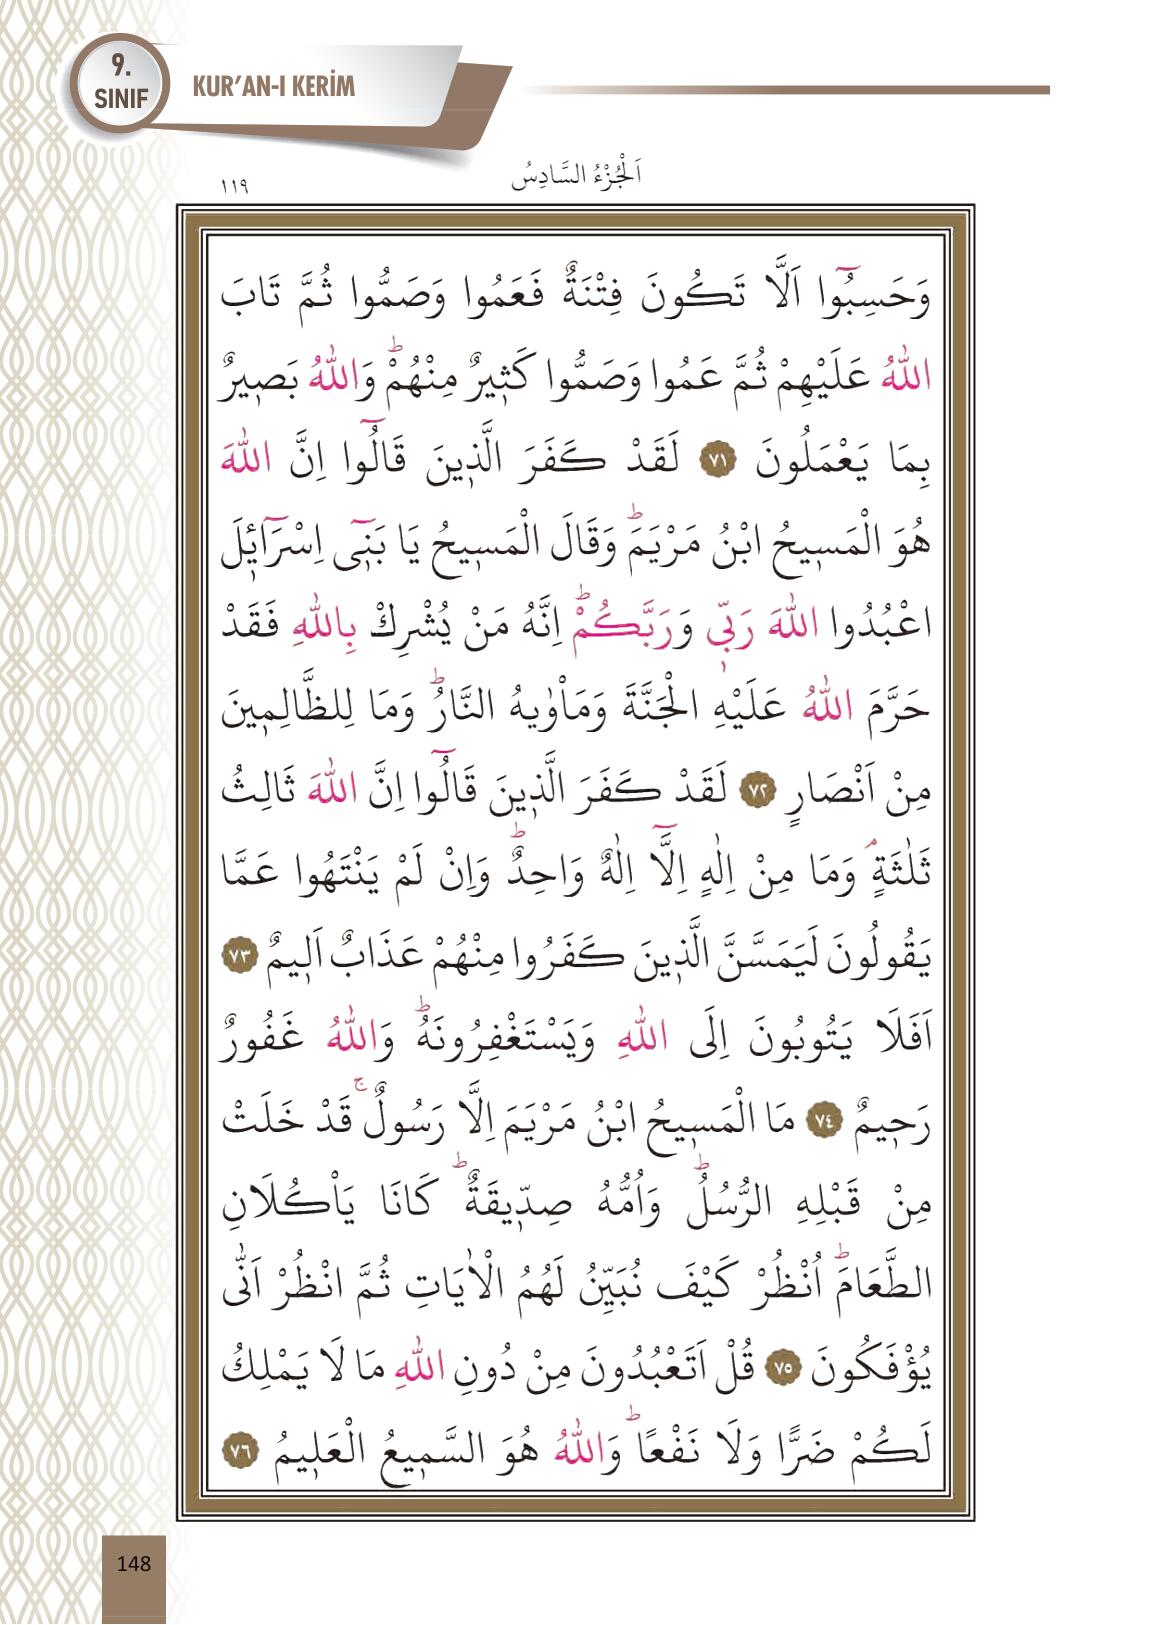 9.
SINIF
KUR’AN-I KERİM
اَلْجُزْءُ السَّادِسُ
١١٩
وَحَسِبُٓوا اَلَّا تَكُونَ فِتْنَةٌ فَعَمُوا وَصَمُّوا ثُمَّ تَابَ
اللّٰهُ عَلَيْهِمْ ثُمَّ عَمُوا وَصَمُّوا كَث۪يرٌ مِنْهُمْۜ وَاللّٰهُ بَص۪يرٌ
بِمَا يَعْمَلُونَ ﴿٧١﴾ لَقَدْ كَفَرَ الَّذ۪ينَ قَالُٓوا اِنَّ اللّٰهَ
هُوَ الْمَس۪يحُ ابْنُ مَرْيَمَۜ وَقَالَ الْمَس۪يحُ يَا بَن۪ٓي اِسْرَٓائ۪لَ
اعْبُدُوا اللّٰهَ رَبّ۪ي وَرَبَّكُمْۜ اِنَّهُ مَنْ يُشْرِكْ بِاللّٰهِ فَقَدْ
حَرَّمَ اللّٰهُ عَلَيْهِ الْجَنَّةَ وَمَأْوٰيهُ النَّارُۜ وَمَا لِلظَّالِم۪ينَ
مِنْ اَنْصَارٍ ﴿٧٢﴾ لَقَدْ كَفَرَ الَّذ۪ينَ قَالُٓوا اِنَّ اللّٰهَ ثَالِثُ
ثَلٰثَةٍۢ وَمَا مِنْ اِلٰهٍ اِلَّٓا اِلٰهٌ وَاحِدٌۜ وَاِنْ لَمْ يَنْتَهُوا عَمَّا
يَقُولُونَ لَيَمَسَّنَّ الَّذ۪ينَ كَفَرُوا مِنْهُمْ عَذَابٌ اَل۪يمٌ ﴿٧٣﴾
اَفَلَا يَتُوبُونَ اِلَى اللّٰهِ وَيَسْتَغْفِرُونَهُۜ وَاللّٰهُ غَفُورٌ
رَح۪يمٌ ﴿٧٤﴾ مَا الْمَس۪يحُ ابْنُ مَرْيَمَ اِلَّا رَسُولٌۚ قَدْ خَلَتْ
مِنْ قَبْلِهِ الرُّسُلُۜ وَاُمُّهُ صِدّ۪يقَةٌۜ كَانَا يَأْكُلَانِ
الطَّعَامَۜ اُنْظُرْ كَيْفَ نُبَيِّنُ لَهُمُ الْاٰيَاتِ ثُمَّ انْظُرْ اَنّٰى
يُؤْفَكُونَ ﴿٧٥﴾ قُلْ اَتَعْبُدُونَ مِنْ دُونِ اللّٰهِ مَا لَا يَمْلِكُ
لَكُمْ ضَرًّا وَلَا نَفْعًاۜ وَاللّٰهُ هُوَ السَّم۪يعُ الْعَل۪يمُ ﴿٧٦﴾
148